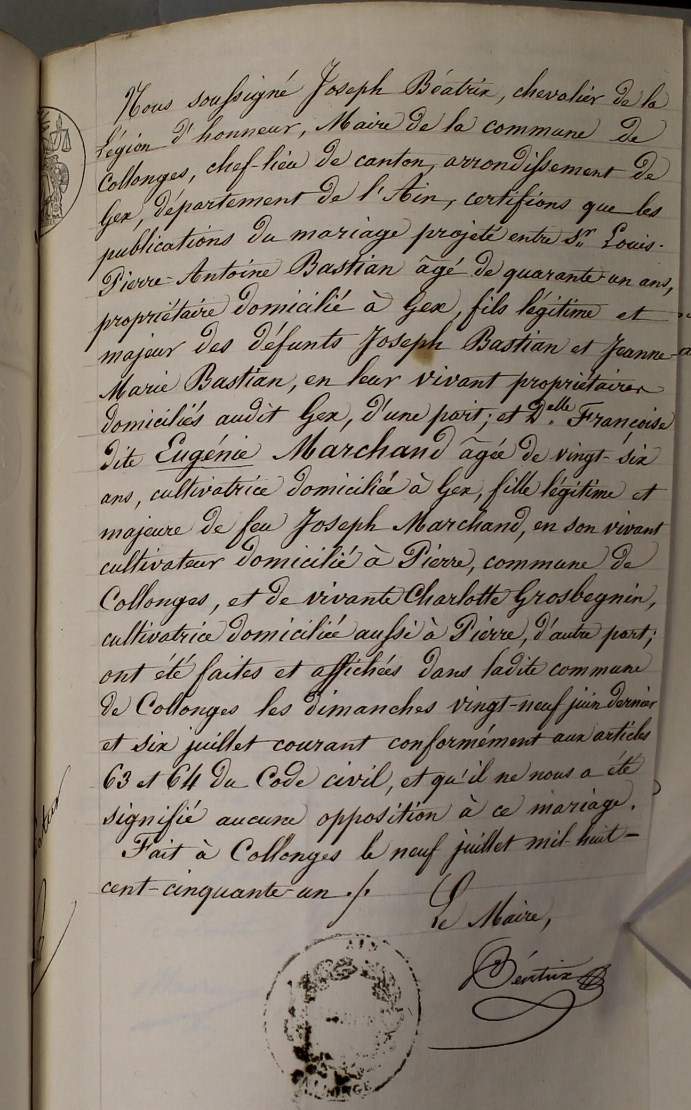 Nous soussigné Joseph Béatrix, chevalier de la
Légion d'honneur, Maire de la commune de
Collonges, chef-lieu de canton, arrondissement de
Gex, département de l'Ain, certifions que les
publications du mariage projeté entre Sr. Louis-
Pierre-Antoine Bastian âgé de quarante-un ans,
propriétaire domicilié à Gex, fils légitime et
majeur des défunts Joseph Bastian et Jeanne-
Marie Bastian, en leur vivant propriétaires
domiciliés audit Gex, d'une part; et Delle. Françoise
dite Eugénie Marchand âgée de vingt-six
ans, cultivatrice domiciliée à Gex, fille légitime et
majeure de feu Joseph Marchand, en son vivant
cultivateur domicilié à Pierre, commune de
Collonges, et de vivante Charlotte Grosbegnin,
cultivatrice domiciliée aussi à Pierre, d'autre part;
ont été faites et affichées dans ladite commune
de Collonges les dimanches vingt-neuf juin dernier
et six juillet courant conformément aux articles
63 et 64 du Code civil, et qu'il ne nous a été
signifié aucune opposition à ce mariage.
Fait à Collonges le neuf juillet mil-huit-
cent-cinquante-un ./.
Le Maire,
Béatrix